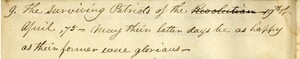 9. The Surviving Patriots of the Revolution 19th of
April, 75 – May their later days be as happy
as their former were glorious –